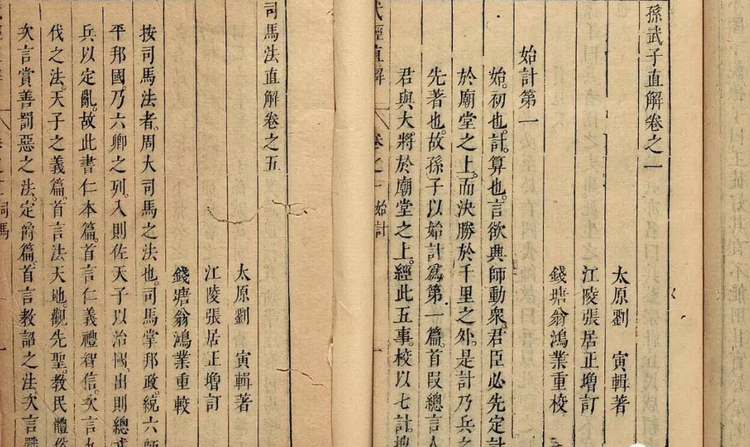 孫武子直解卷之一
太原劉　寅輯著
江陵張居正增訂
錢塘翁鴻業重校
始計第一
始。初也。計。算也。言欲興師動衆。君臣必先定計
於廟堂之上。而決勝於千里之外。是計乃兵之
先著也。故孫子以始計爲第一篇。首叚總言人
君與大將於廟堂之上。經此五事。校以七計
經直解 卷之一 始計
司馬法直解卷之五
太原劉　寅輯著
江陵張居正增訂
錢塘翁鴻業重較
按司馬法者。周大司馬之法也。司馬掌邦政。統六師
平邦國。乃六卿之列。入則佐天子以治國。出則總戎
兵以定亂。故此書仁本篇。首言仁義禮智信。次言九
伐之法。天子之義篇。首言法天地。觀先聖。教民體俗
次言賞善罰惡之法。定爵篇。首言教詔之法。次言
經直解 司馬